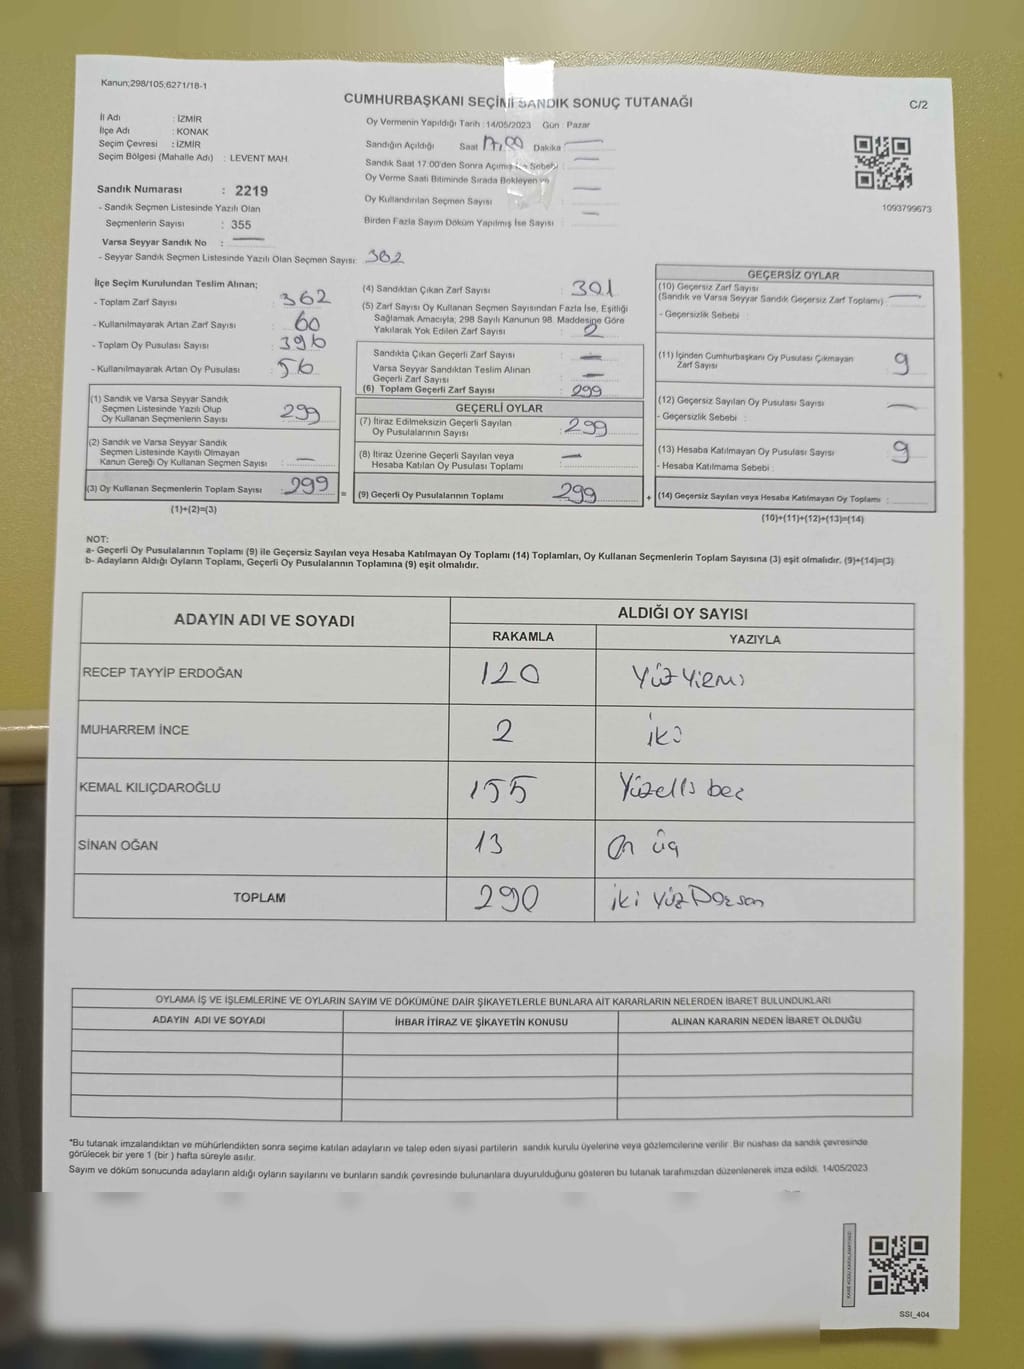 Kanun;298/105;6271/18-1
CUMHURBAŞKANI SEÇİMİ SANDIK SONUÇ TUTANAĞI
C/2
İl Adı : İZMİR
İlçe Adı : KONAK
Seçim Çevresi : İZMİR
Seçim Bölgesi (Mahalle Adı) : LEVENT MAH.
Sandık Numarası : 2219
- Sandık Seçmen Listesinde Yazılı Olan
Seçmenlerin Sayısı : 355
Varsa Seyyar Sandık No : —
- Seyyar Sandık Seçmen Listesinde Yazılı Olan Seçmen Sayısı: 362
Oy Vermenin Yapıldığı Tarih : 14/05/2023 Gün : Pazar
Sandığın Açıldığı Saat 17,00 Dakika : —
Sandık Saat 17:00'den Sonra Açılmış İse Sebebi : —
Oy Verme Saati Bitiminde Sırada Bekleyen ve
Oy Kullandırılan Seçmen Sayısı : —
Birden Fazla Sayım Döküm Yapılmış İse Sayısı : —
1093799673
İlçe Seçim Kurulundan Teslim Alınan;
- Toplam Zarf Sayısı : 362
- Kullanılmayarak Artan Zarf Sayısı : 60
- Toplam Oy Pusulası Sayısı : 396
- Kullanılmayarak Artan Oy Pusulası : 56
(1) Sandık ve Varsa Seyyar Sandık
Seçmen Listesinde Yazılı Olup
Oy Kullanan Seçmenlerin Sayısı : 299
(2) Sandık ve Varsa Seyyar Sandık
Seçmen Listesinde Kayıtlı Olmayan
Kanun Gereği Oy Kullanan Seçmen Sayısı : —
(3) Oy Kullanan Seçmenlerin Toplam Sayısı : 299
(1)+(2)=(3)
(4) Sandıktan Çıkan Zarf Sayısı : 301
(5) Zarf Sayısı Oy Kullanan Seçmen Sayısından Fazla İse, Eşitliği
Sağlamak Amacıyla, 298 Sayılı Kanunun 98. Maddesine Göre
Yakılarak Yok Edilen Zarf Sayısı : 2
Sandıkta Çıkan Geçerli Zarf Sayısı : —
Varsa Seyyar Sandıktan Teslim Alınan
Geçerli Zarf Sayısı : —
(6) Toplam Geçerli Zarf Sayısı : 299
GEÇERLİ OYLAR
(7) İtiraz Edilmeksizin Geçerli Sayılan
Oy Pusulalarının Sayısı : 299
(8) İtiraz Üzerine Geçerli Sayılan veya
Hesaba Katılan Oy Pusulası Toplamı : —
= (9) Geçerli Oy Pusulalarının Toplamı 299
GEÇERSİZ OYLAR
(10) Geçersiz Zarf Sayısı
(Sandık ve Varsa Seyyar Sandık Geçersiz Zarf Toplamı) : —
- Geçersizlik Sebebi :
(11) İçinden Cumhurbaşkanı Oy Pusulası Çıkmayan
Zarf Sayısı 9
(12) Geçersiz Sayılan Oy Pusulası Sayısı —
- Geçersizlik Sebebi :
(13) Hesaba Katılmayan Oy Pusulası Sayısı 9
- Hesaba Katılmama Sebebi :
+ (14) Geçersiz Sayılan veya Hesaba Katılmayan Oy Toplamı :
(10)+(11)+(12)+(13)=(14)
NOT:
a- Geçerli Oy Pusulalarının Toplamı (9) ile Geçersiz Sayılan veya Hesaba Katılmayan Oy Toplamı (14) Toplamları, Oy Kullanan Seçmenlerin Toplam Sayısına (3) eşit olmalıdır. (9)+(14)=(3)
b- Adayların Aldığı Oyların Toplamı, Geçerli Oy Pusulalarının Toplamına (9) eşit olmalıdır.
ADAYIN ADI VE SOYADI
ALDIĞI OY SAYISI
RAKAMLA YAZIYLA
RECEP TAYYİP ERDOĞAN 120 Yüz Yirmi
MUHARREM İNCE 2 iki
KEMAL KILIÇDAROĞLU 155 Yüzelli beş
SİNAN OĞAN 13 On üç
TOPLAM 290 iki Yüz Doksan
OYLAMA İŞ VE İŞLEMLERİNE VE OYLARIN SAYIM VE DÖKÜMÜNE DAİR ŞİKAYETLERLE BUNLARA AİT KARARLARIN NELERDEN İBARET BULUNDUKLARI
ADAYIN ADI VE SOYADI İHBAR İTİRAZ VE ŞİKAYETİN KONUSU ALINAN KARARIN NEDEN İBARET OLDUĞU
*Bu tutanak imzalandıktan ve mühürlendikten sonra seçime katılan adayların ve talep eden siyasi partilerin sandık kurulu üyelerine veya gözlemcilerine verilir. Bir nüshası da sandık çevresinde
görülecek bir yere 1 (bir ) hafta süreyle asılır.
Sayım ve döküm sonucunda adayların aldığı oyların sayılarını ve bunların sandık çevresinde bulunanlara duyurulduğunu gösteren bu tutanak tarafımızdan düzenlenerek imza edildi. 14/05/2023
SSI_404